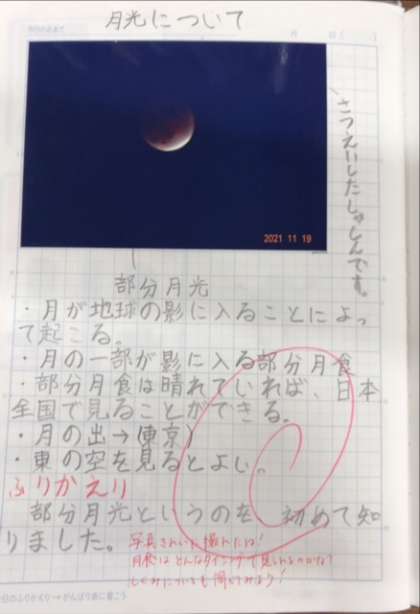 月光について
2021 11 19
さつえいしたしゃしんです。
部分月光
・月が地球の影に入ることによっ
て起こる。
・月の一部が影に入る部分月食
・部分月食は晴れていれば、日本
全国で見ることができる。
・月の出→(東京)
・東の空を見るとよい。
ふりかえり
部分月光というのを初めて知
りました。
写真きれいに撮れたね!
月食はどんなタイミングで見られるのかな?
しくみについても調べてみよう!